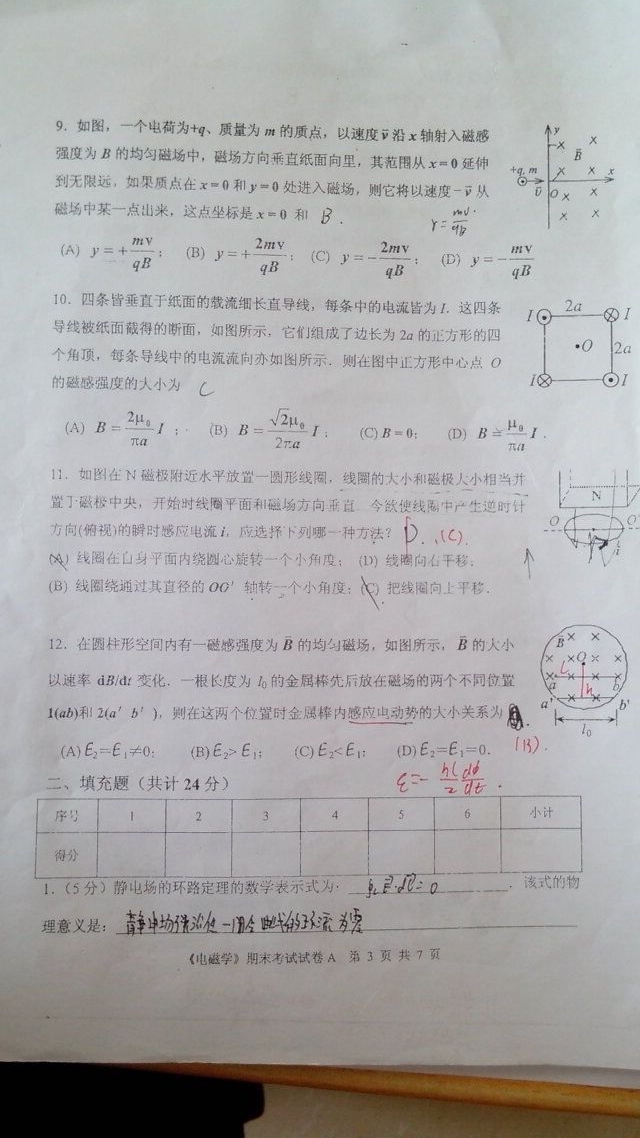 9. 如图，一个电荷为+q、质量为 m 的质点，以速度 v̄ 沿 x 轴射入磁感
强度为 B 的均匀磁场中，磁场方向垂直纸面向里，其范围从 x = 0 延伸
到无限远，如果质点在 x = 0 和 y = 0 处进入磁场，则它将以速度 −v̄ 从
磁场中某一点出来，这点坐标是 x = 0 和 B .
r = mv/qB
(A) y = + mv/qB； (B) y = + 2mv/qB； (C) y = − 2mv/qB； (D) y = − mv/qB
y
B̄
+q, m
v̄
O
x
10. 四条皆垂直于纸面的载流细长直导线，每条中的电流皆为 I. 这四条
导线被纸面截得的断面，如图所示，它们组成了边长为 2a 的正方形的四
个角顶，每条导线中的电流流向亦如图所示. 则在图中正方形中心点 O
的磁感强度的大小为 C
(A) B = 2μ₀/πa I ； (B) B = √2μ₀/2πa I ； (C) B = 0； (D) B = μ₀/πa I .
I 2a I
O 2a
I I
11. 如图在 N 磁极附近水平放置一圆形线圈，线圈的大小和磁极大小相当并
置于磁极中央，开始时线圈平面和磁场方向垂直. 今欲使线圈中产生逆时针
方向(俯视)的瞬时感应电流 i，应选择下列哪一种方法? D. (C).
(A) 线圈在自身平面内绕圆心旋转一个小角度； (D) 线圈向右平移.
(B) 线圈绕通过其直径的 OO′ 轴转一个小角度； (C) 把线圈向上平移.
N
O O′
i
12. 在圆柱形空间内有一磁感强度为 B̄ 的均匀磁场，如图所示，B̄ 的大小
以速率 dB/dt 变化. 一根长度为 l₀ 的金属棒先后放在磁场的两个不同位置
1(ab)和 2(a′ b′)，则在这两个位置时金属棒内感应电动势的大小关系为
(B).
(A) E₂=E₁≠0； (B) E₂> E₁； (C) E₂< E₁； (D) E₂=E₁=0.
B̄
O
l
h
a b
a′ b′
l₀
ε = − hl/2 dϕ/dt .
二、填充题（共计 24 分）
序号 1 2 3 4 5 6 小计
得分
1.（5 分）静电场的环路定理的数学表示式为： ∮L E·dl = 0 . 该式的物
理意义是： 静电场强沿任一闭合曲线的环流为零
《电磁学》期末考试试卷 A 第 3 页 共 7 页